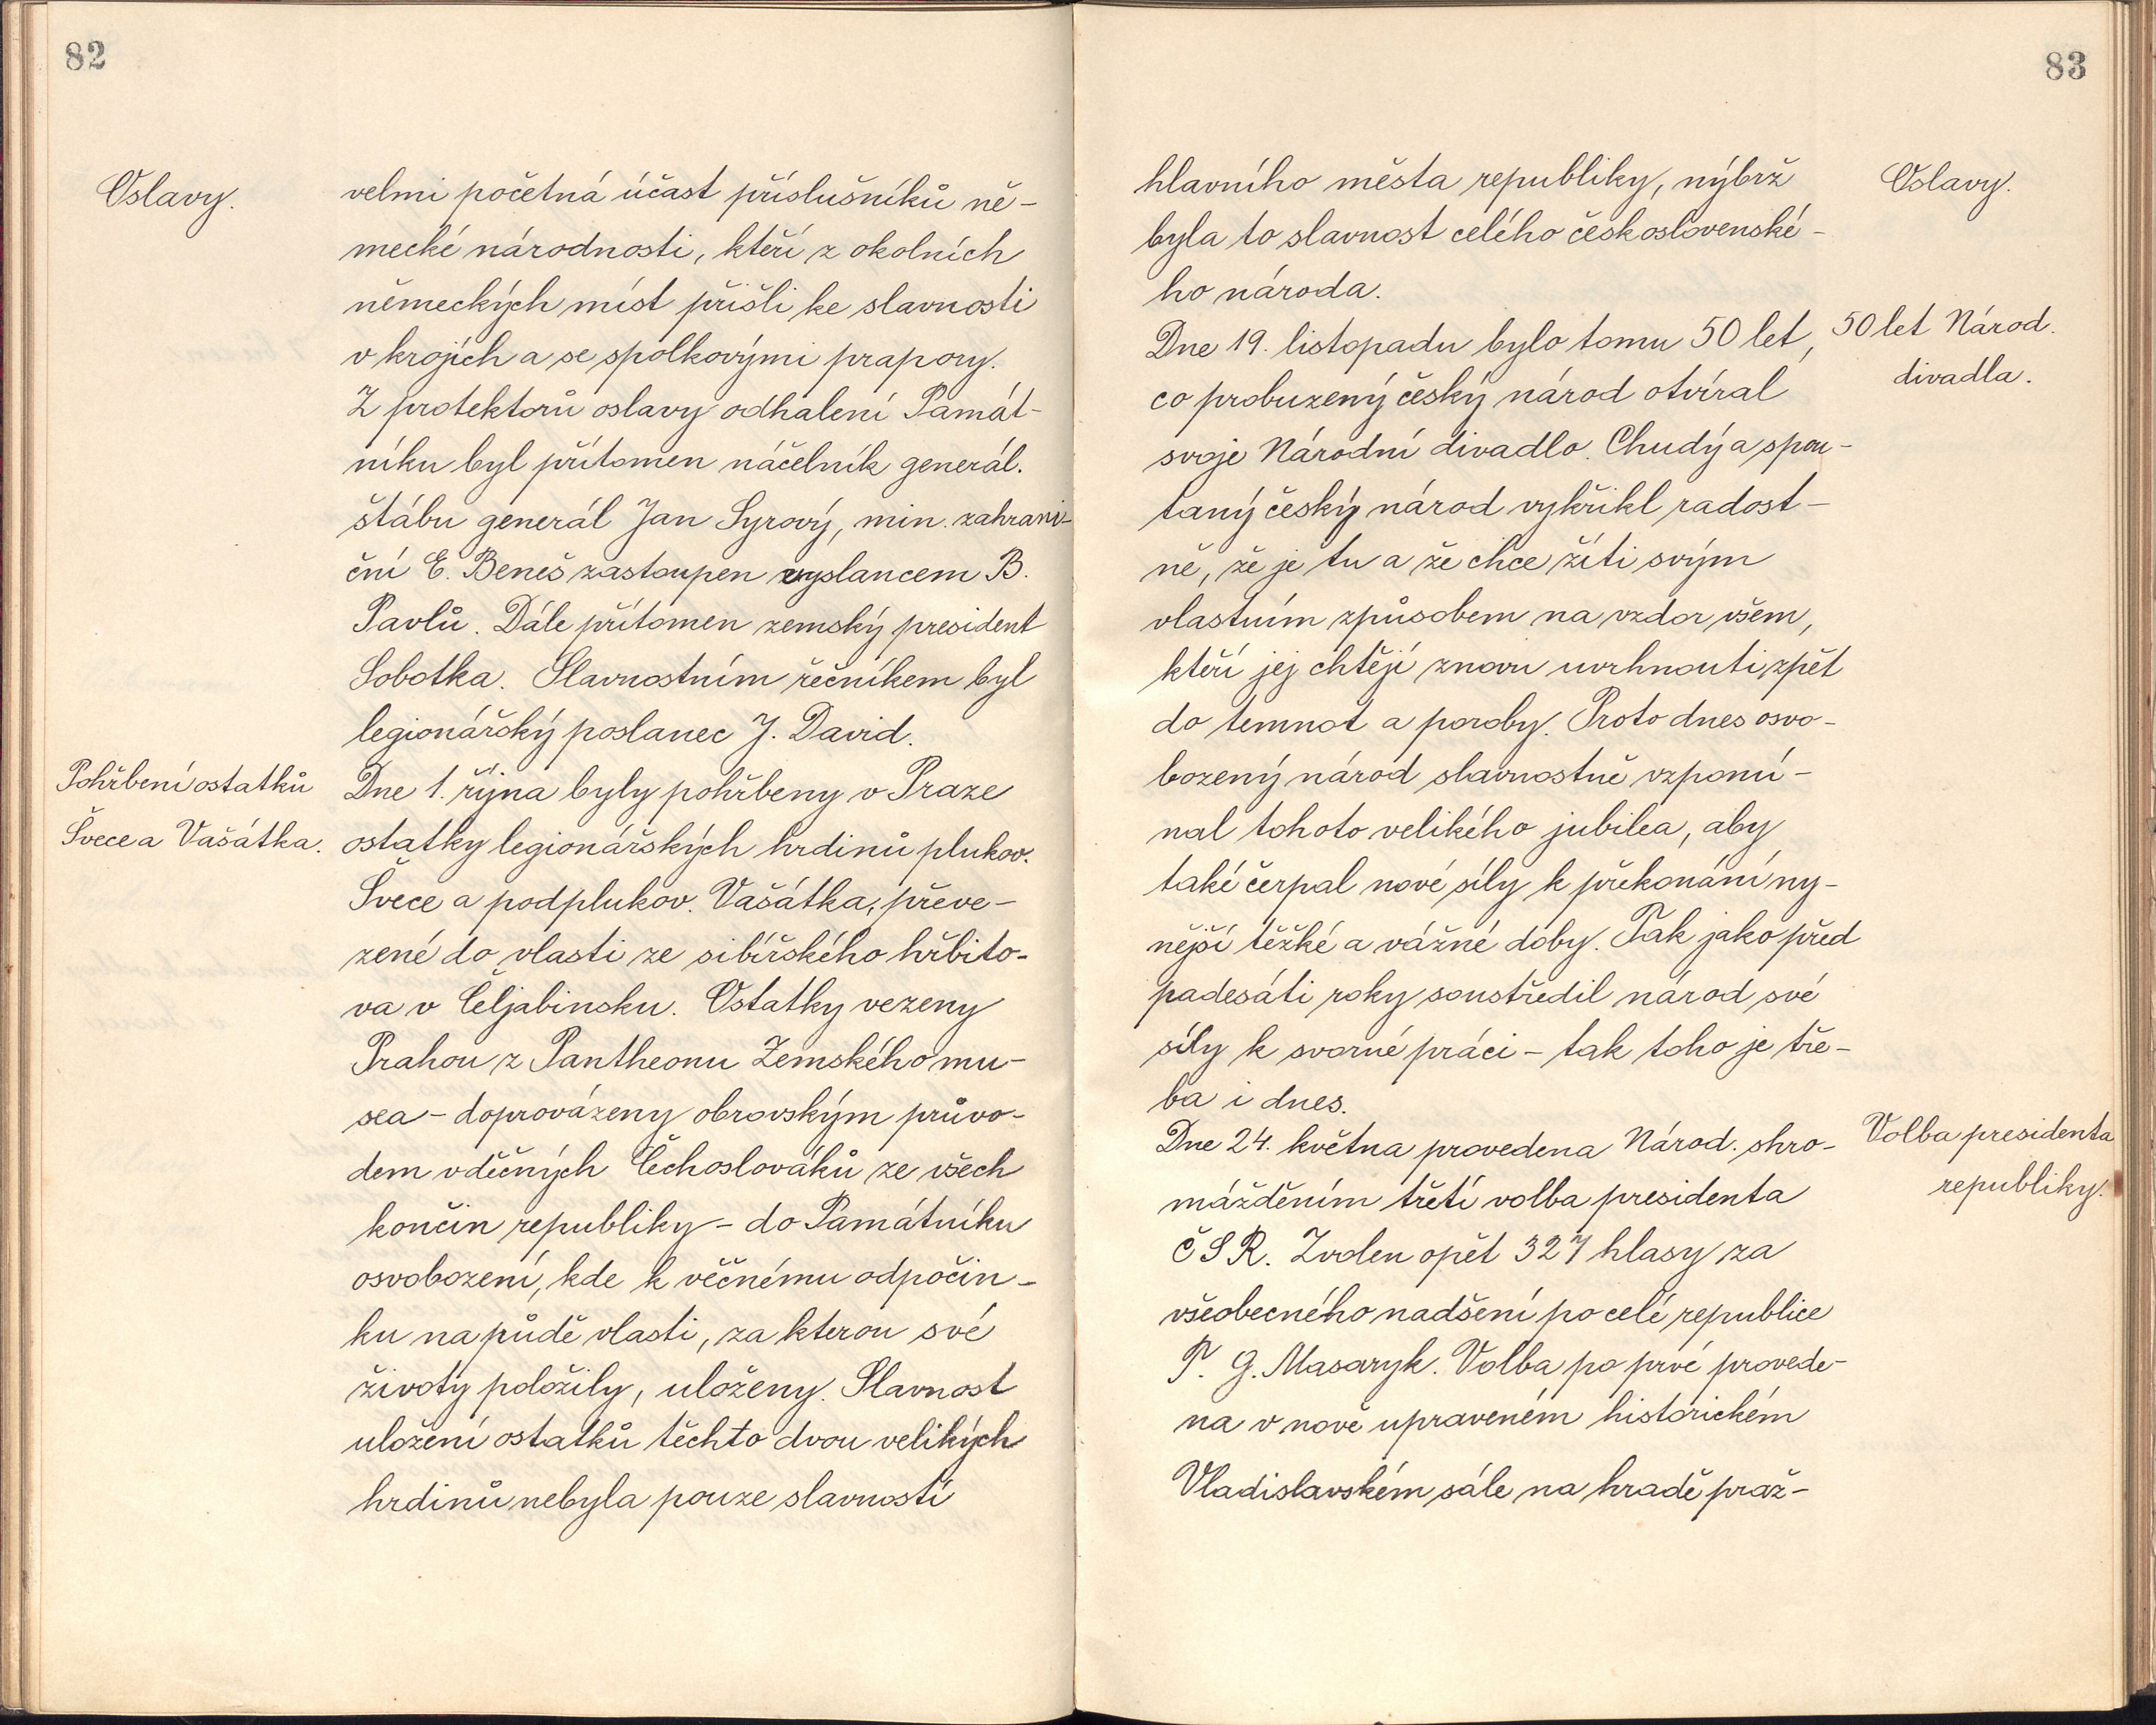 82
Oslavy.
velmi početná účast příslušníků ně-
mecké národnosti, kteří z okolních
německých míst přišli ke slavnosti
v krojích a se spolkovými prapory.
Z protektorů oslavy odhalení Památ-
níku byl přítomen náčelník generál.
štábu generál Jan Syrový, min. zahrani-
ční E. Beneš zastoupen vyslancem B.
Pavlů. Dále přítomen zemský president
Sobotka. Slavnostním řečníkem byl
legionářský poslanec J. David.
Pohřbení ostatků
Švece a Vašátka.
Dne 1. října byly pohřbeny v Praze
ostatky legionářských hrdinů plukov.
Švece a podplukov. Vašátka, převe-
zené do vlasti ze sibířského hřbito-
va v Čeljabinsku. Ostatky vezeny
Prahou z Pantheonu Zemského mu-
sea - doprovázeny obrovským průvo-
dem vděčných Čechoslováků ze všech
končin republiky - do Památníku
osvobození, kde k věčnému odpočin-
ku na půdě vlasti, za kterou své
životy položily, uloženy. Slavnost
uložení ostatků těchto dvou velikých
hrdinů nebyla pouze slavností
83
hlavního města republiky, nýbrž
Oslavy.
byla to slavnost celého československé-
ho národa.
Dne 19. listopadu bylo tomu 50 let,
50 let Národ.
divadla.
co probuzený český národ otvíral
svoje Národní divadlo. Chudý a spou-
taný český národ vykřikl radost-
ně, že je tu a že chce žíti svým
vlastním způsobem na vzdor všem,
kteří jej chtějí znovu uvrhnouti zpět
do temnot a poroby. Proto dnes osvo-
bozený národ slavnostně vzpomí-
nal tohoto velikého jubilea, aby
také čerpal nové síly k překonání ny-
nější těžké a vážné doby. Tak jako před
padesáti roky soustředil národ své
síly k svorné práci - tak toho je tře-
ba i dnes.
Dne 24. května provedena Národ. shro-
Volba presidenta
republiky.
mážděním třetí volba presidenta
ČSR. Zvolen opět 327 hlasy za
všeobecného nadšení po celé republice
T. G. Masaryk. Volba po prvé provede-
na v nově upraveném historickém
Vladislavském sále na hradě praž-